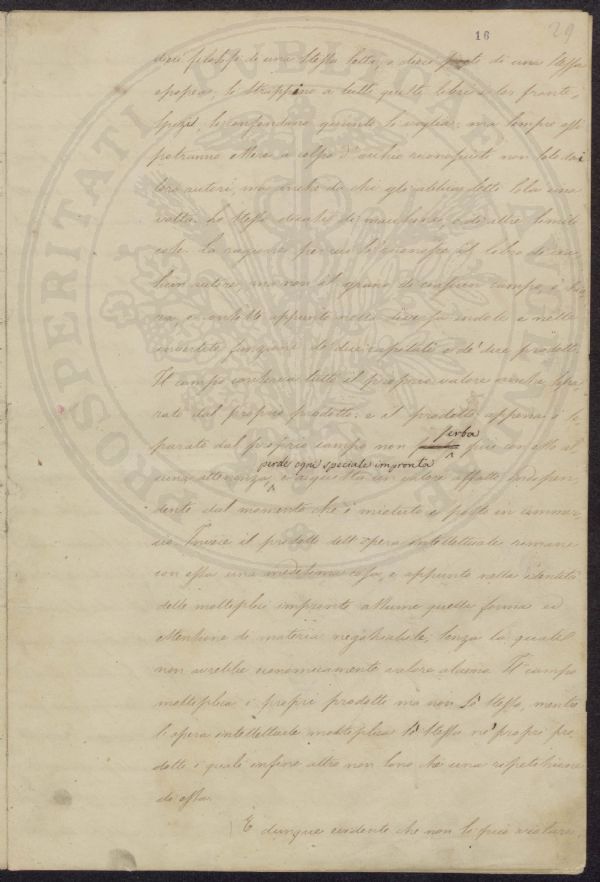 16
29
dieci filosofi di una stessa setta, o dieci poeti di una stessa
epopea; si strappino a tutti questi libri i lor fronte-
spizi, si confondano quanto si voglia; ma sempre essi
potranno essere a colpo d'occhio riconosciuti non solo dai
loro autori, ma anche da chi gli abbia letti sola una
volta. Lo stesso dicasi di macchine, o di altre simili
cose. La ragione per cui si riconosce il libro di
autore, ma non il grano di ciascun campo, è
appunto nella diversa indole e nelle
funzioni de' due capitali e de' due prodotti.
Il campo conserva tutto il proprio valore anche sepa-
rato dal proprio prodotto: e il prodotto appena è se-
parato dal proprio campo non serba più con esso al-
cuna attenenza, perde ogni speciale impronta e acquista un valore affatto indipen-
dente dal momento che è mietuto e posto in commer-
cio. Invece il prodotto dell'opera intellettuale rimane
con essa una medesima cosa, e appunto nella identità
delle molteplici impronte assume quella forma ed
estensione di materia negoziabile, senza la quale
non avrebbe economicamente valore alcuno. Il campo
moltiplica i propri prodotti ma non sè stesso, mentre
l'opera intellettuale moltiplica sè stessa ne' propri pro-
dotti i quali infine altro non sono che una ripetizione
di essa.
È dunque evidente che non si può
PROSPERITATI PUBLICAE